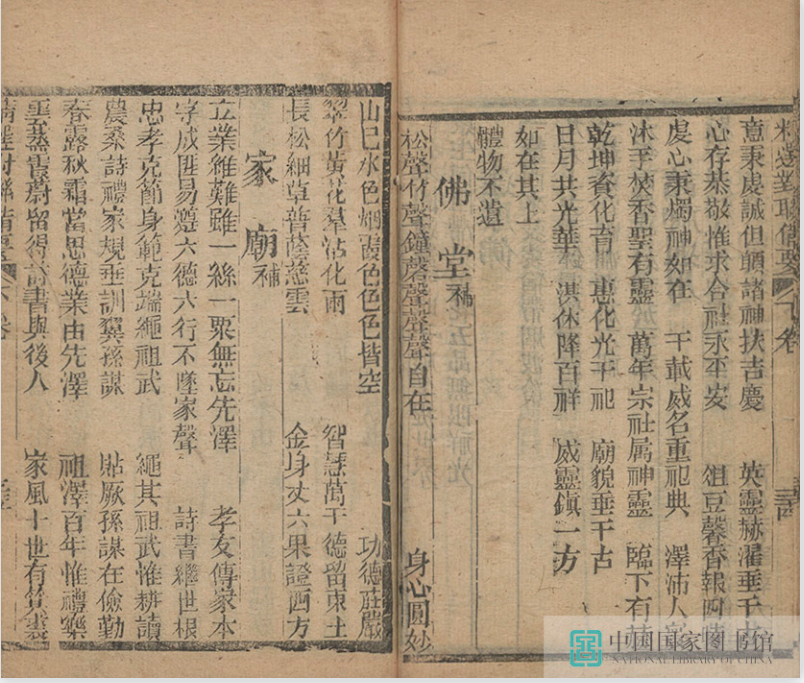 精選對聯備要 下卷
意秉虔誠但願諸神扶吉慶 英靈赫濯垂千古
心存恭敬惟求合社永平安 俎豆馨香報四時
虔心秉燭神如在 千載威名重祀典 澤沛人寰
沐手焚香聖有靈 萬年宗社属神靈 臨下有赫
乾坤資化育 惠化光千祀 廟貌垂千古
日月共光華 洪休降百祥 威靈鎮一方
如在其上
體物不遺
佛堂補
松聲竹聲鐘磬聲聲聲自在 身心圓妙
山色水色烟霞色色色皆空 功德莊嚴
翠竹黃花羣沾化雨 智慧萬千德留東土
長松細草普蔭慈雲 金身丈六果證西方
家廟補
立業維難雖一絲一粟無忘先澤 孝友傳家本
守成匪易遵六德六行不墜家聲 詩書繼世根
忠孝克節身範克端繩祖武 繩其祖武惟耕讀
農桑詩禮家規垂訓翼孫謀 貽厥孫謀在儉勤
春露秋霜當思德業由先澤 祖澤百年惟禮樂
雲蒸霞蔚留得詩書與後人 家風十世有箕裘
精選對聯備要 下卷
中國国家图书馆
NATIONAL LIBRARY OF CHINA